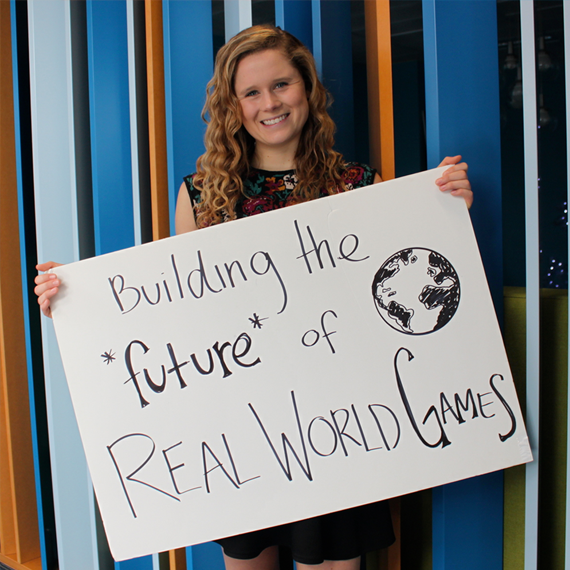 Building the
*future* of
REAL WORLD GAMES